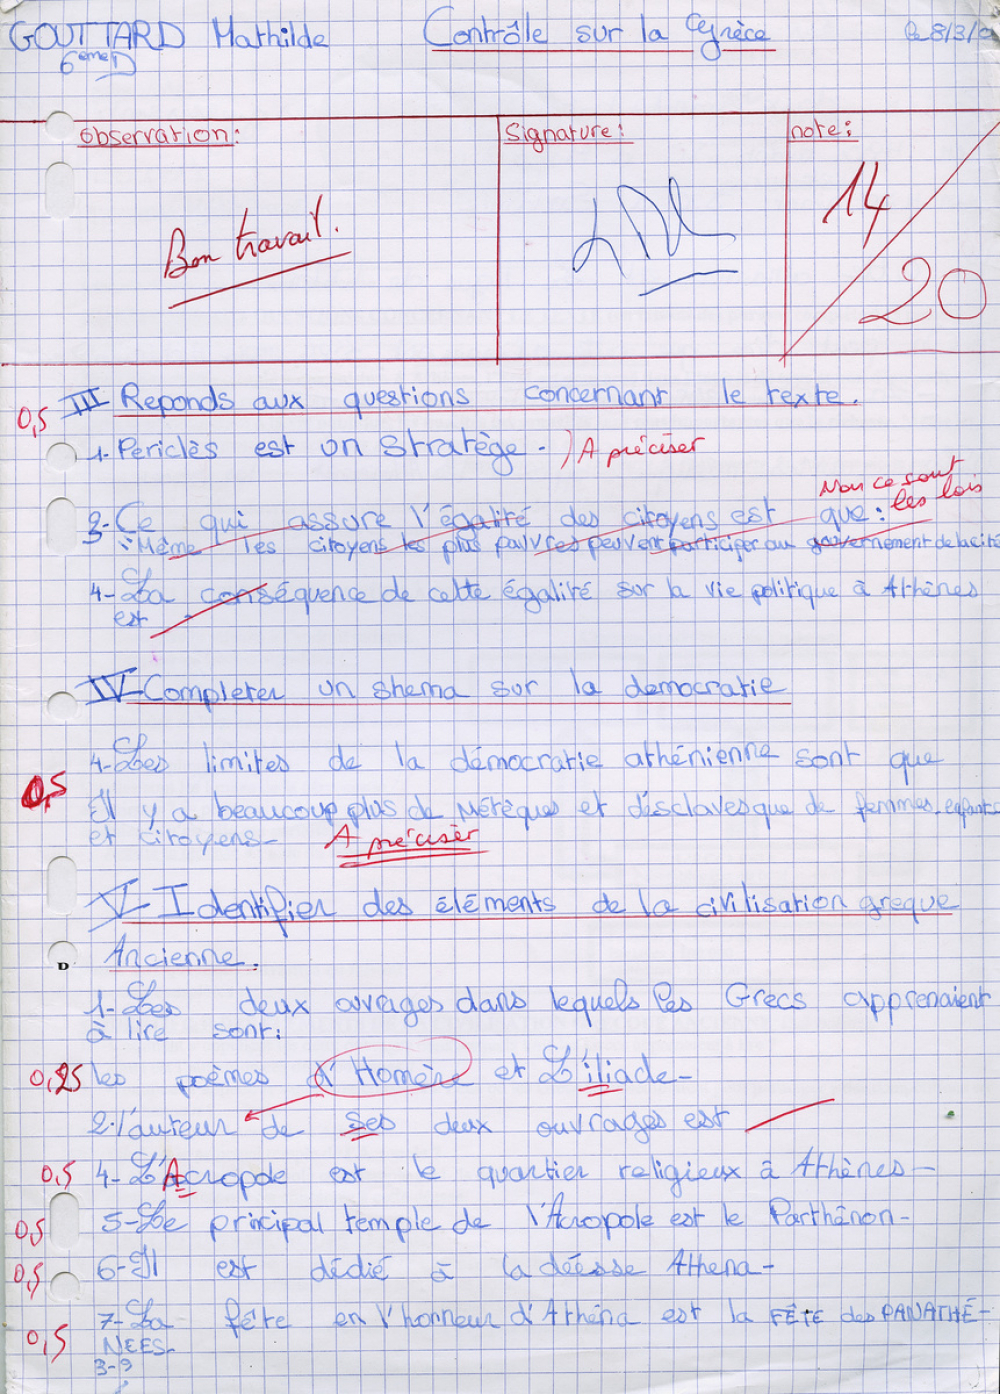 GOUTTARD Mathilde Contrôle sur la Grèce
6èmeD
Observation: Signature: note:
Bon travail. 14
20
0,5 III Reponds aux questions concernant le texte.
1- Periclès est un stratège. A préciser
Non ce sont
3- Ce qui assure l'égalité des citoyens est que: les lois
Même les citoyens les plus pauvres peuvent participer au gouvernement de la cité
4- La conséquence de cette égalité sur la vie politique à Athènes
est
IV- Completer un shema sur la democratie
4- Les limites de la démocratie athénienne sont que
0,5
Il y a beaucoup plus de Métèques et d'ésclaves que de femmes, enfants
et citoyens- A préciser
V- Identifier des éléments de la civilisation greque
Ancienne.
1- Les deux ouvrages dans lequels les Grecs apprenaient
à lire sont:
0,25 les poèmes d'Homère et L'iliade-
2- l'auteur de ses deux ouvrages est
0,5 4- L'Acropole est le quartier religieux à Athènes-
0,5 5- Le principal temple de l'Acropole est le Parthénon-
0,5 6- Il est dédié à la déésse Athena-
7- La fête en l'honneur d'Athéna est la FÊTE des PANATHÉ-
0,5 NEES-
3-9